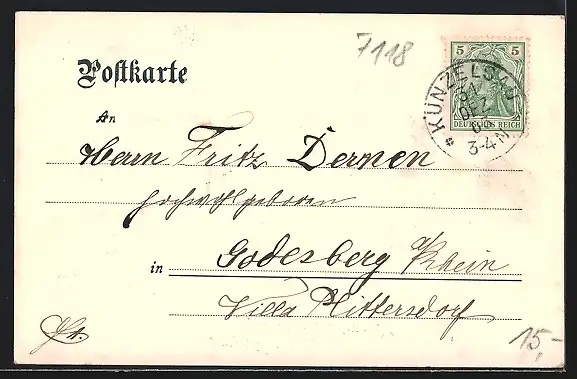 7118
Postkarte
5 5
DEUTSCHES REICH
KÜNZELSAU
31
DEZ
3-4 N
An
Herrn Fritz Dernen
Hochwohlgeboren
in Godesberg Rhein
Villa Rittersdorf
15,-